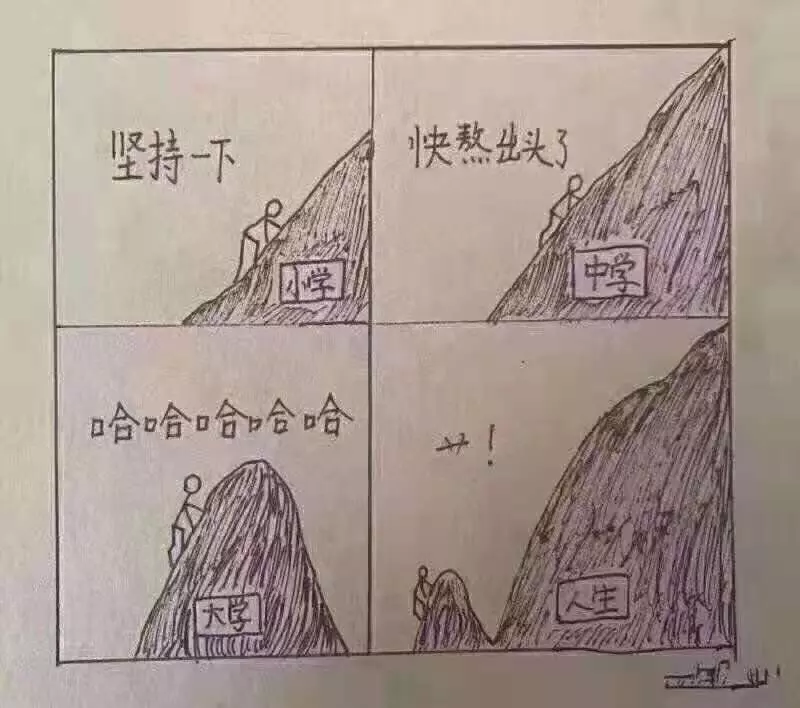 坚持一下
小学
快熬出头了
中学
哈哈哈哈哈
大学
艹!
人生